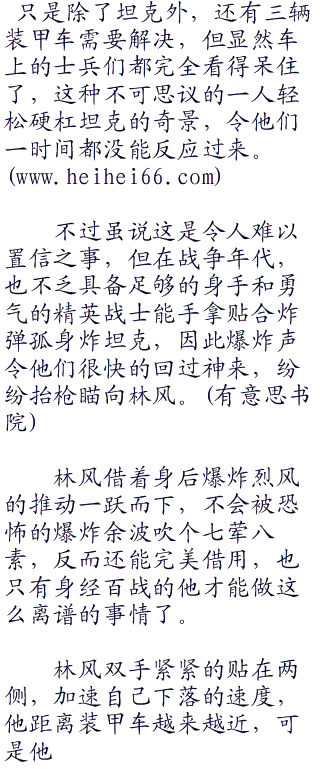 只是除了坦克外，还有三辆
装甲车需要解决，但显然车
上的士兵们都完全看得呆住
了，这种不可思议的一人轻
松硬杠坦克的奇景，令他们
一时间都没能反应过来。
(www.heihei66.com)
不过虽说这是令人难以
置信之事，但在战争年代，
也不乏具备足够的身手和勇
气的精英战士能手拿贴合炸
弹孤身炸坦克，因此爆炸声
令他们很快的回过神来，纷
纷抬枪瞄向林风。(有意思书
院)
林风借着身后爆炸烈风
的推动一跃而下，不会被恐
怖的爆炸余波吹个七荤八
素，反而还能完美借用，也
只有身经百战的他才能做这
么离谱的事情了。
林风双手紧紧的贴在两
侧，加速自己下落的速度，
他距离装甲车越来越近，可
是他